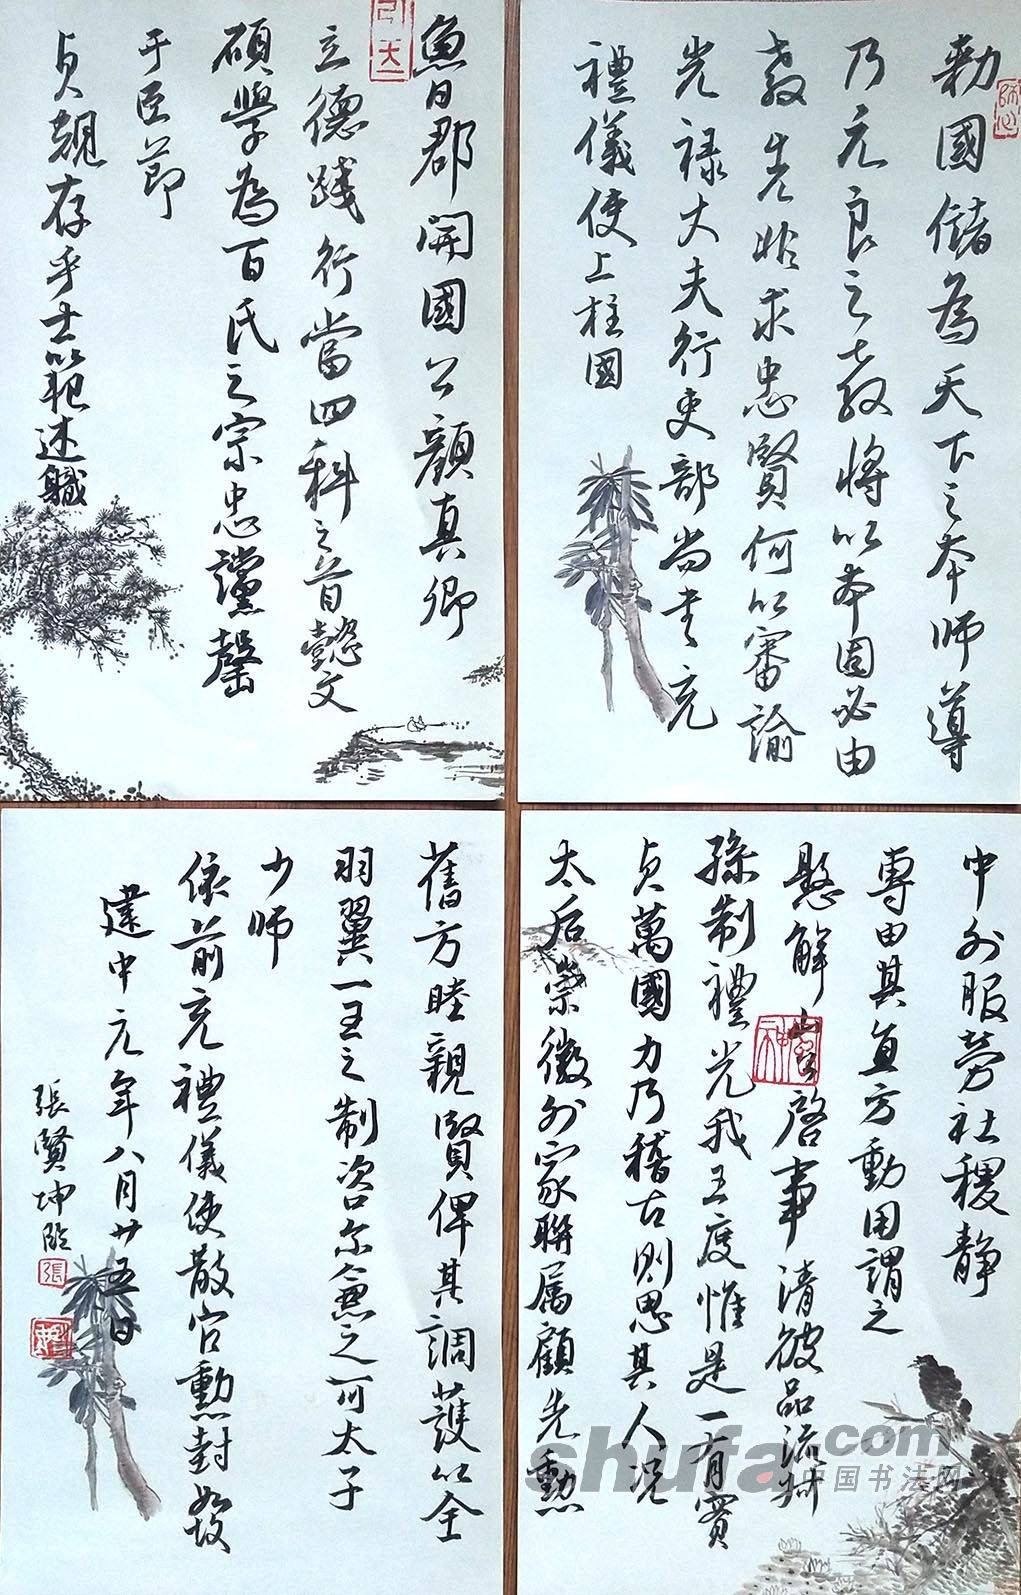 勅國儲為天下之本師導
乃元良之教將以本固必由
教先非求忠賢何以審諭
光禄大夫行吏部尚書充
禮儀使上柱國
師心
魯郡開國公顏真卿
立德踐行當四科之首懿文
碩學為百氏之宗忠讜罄
于臣節
貞規存乎士範述職
中外服勞社稷靜
專由其直方動用謂之
懸解山公啓事清彼品流叔
孫制禮光我王度惟是一有實
貞萬國力乃稽古則思其人況
太后崇徽外家聯属顧先勳
舊方睦親賢俾其調護以全
羽翼一王之制咨尔兼之可太子
少師
依前充禮儀使散官勳封如故
建中元年八月廿五日
張賢坤臨
張
shufa.com
中国书法网